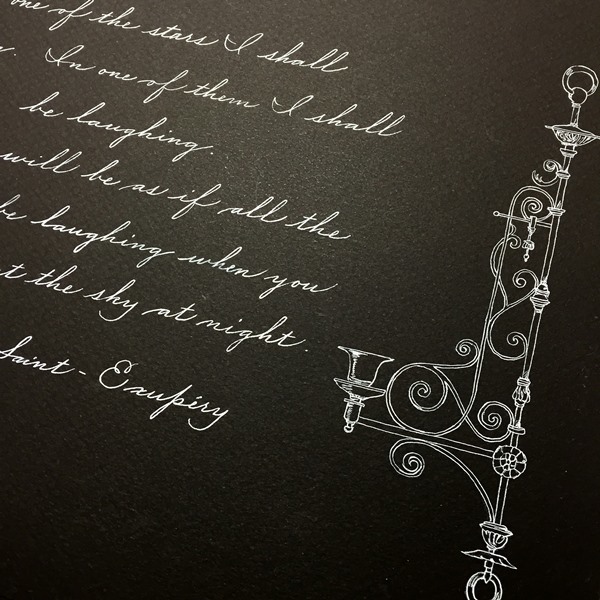 one of the stars I shall
In one of them I shall
be laughing.
will be as if all the
be laughing when you
the sky at night.
Saint-Exupéry